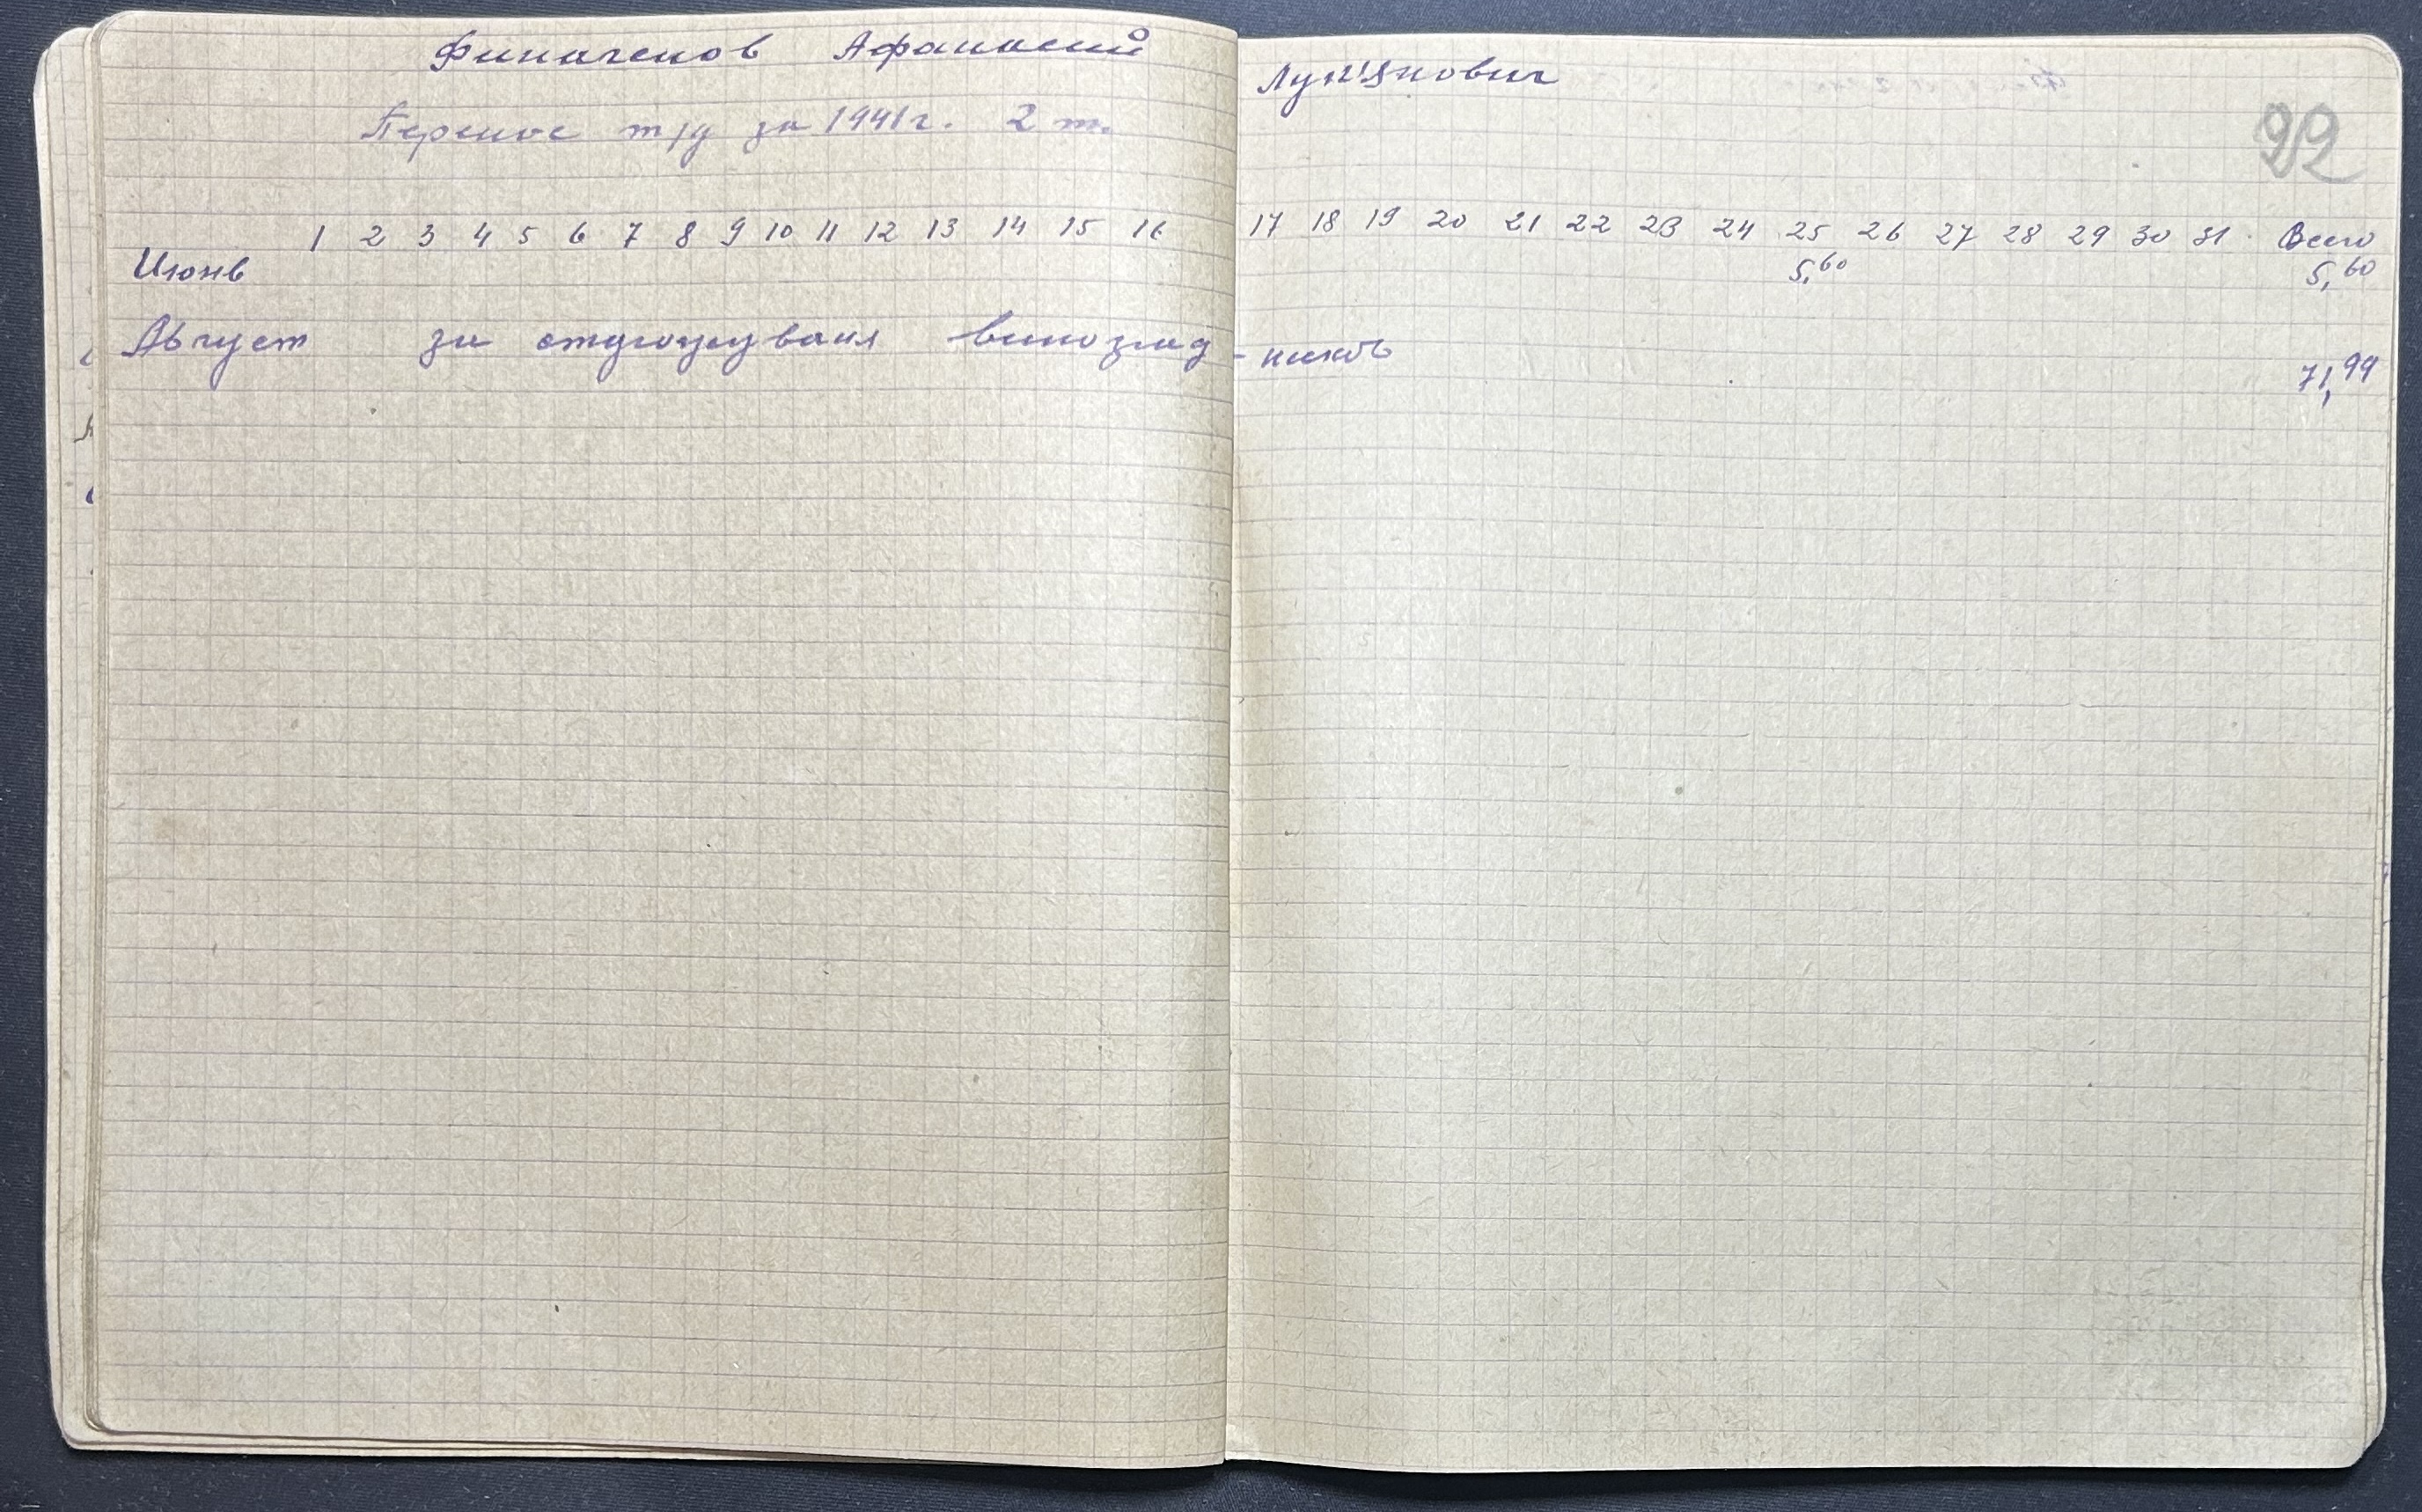 Финагенов Афанасий Лук'янович
Перенос т/д за 1941 г. 2 т.
92
1 2 3 4 5 6 7 8 9 10 11 12 13 14 15 16 17 18 19 20 21 22 23 24 25 26 27 28 29 30 31 Всего
Июнь 5,60 5,60
Август за виноград-ников 71,99